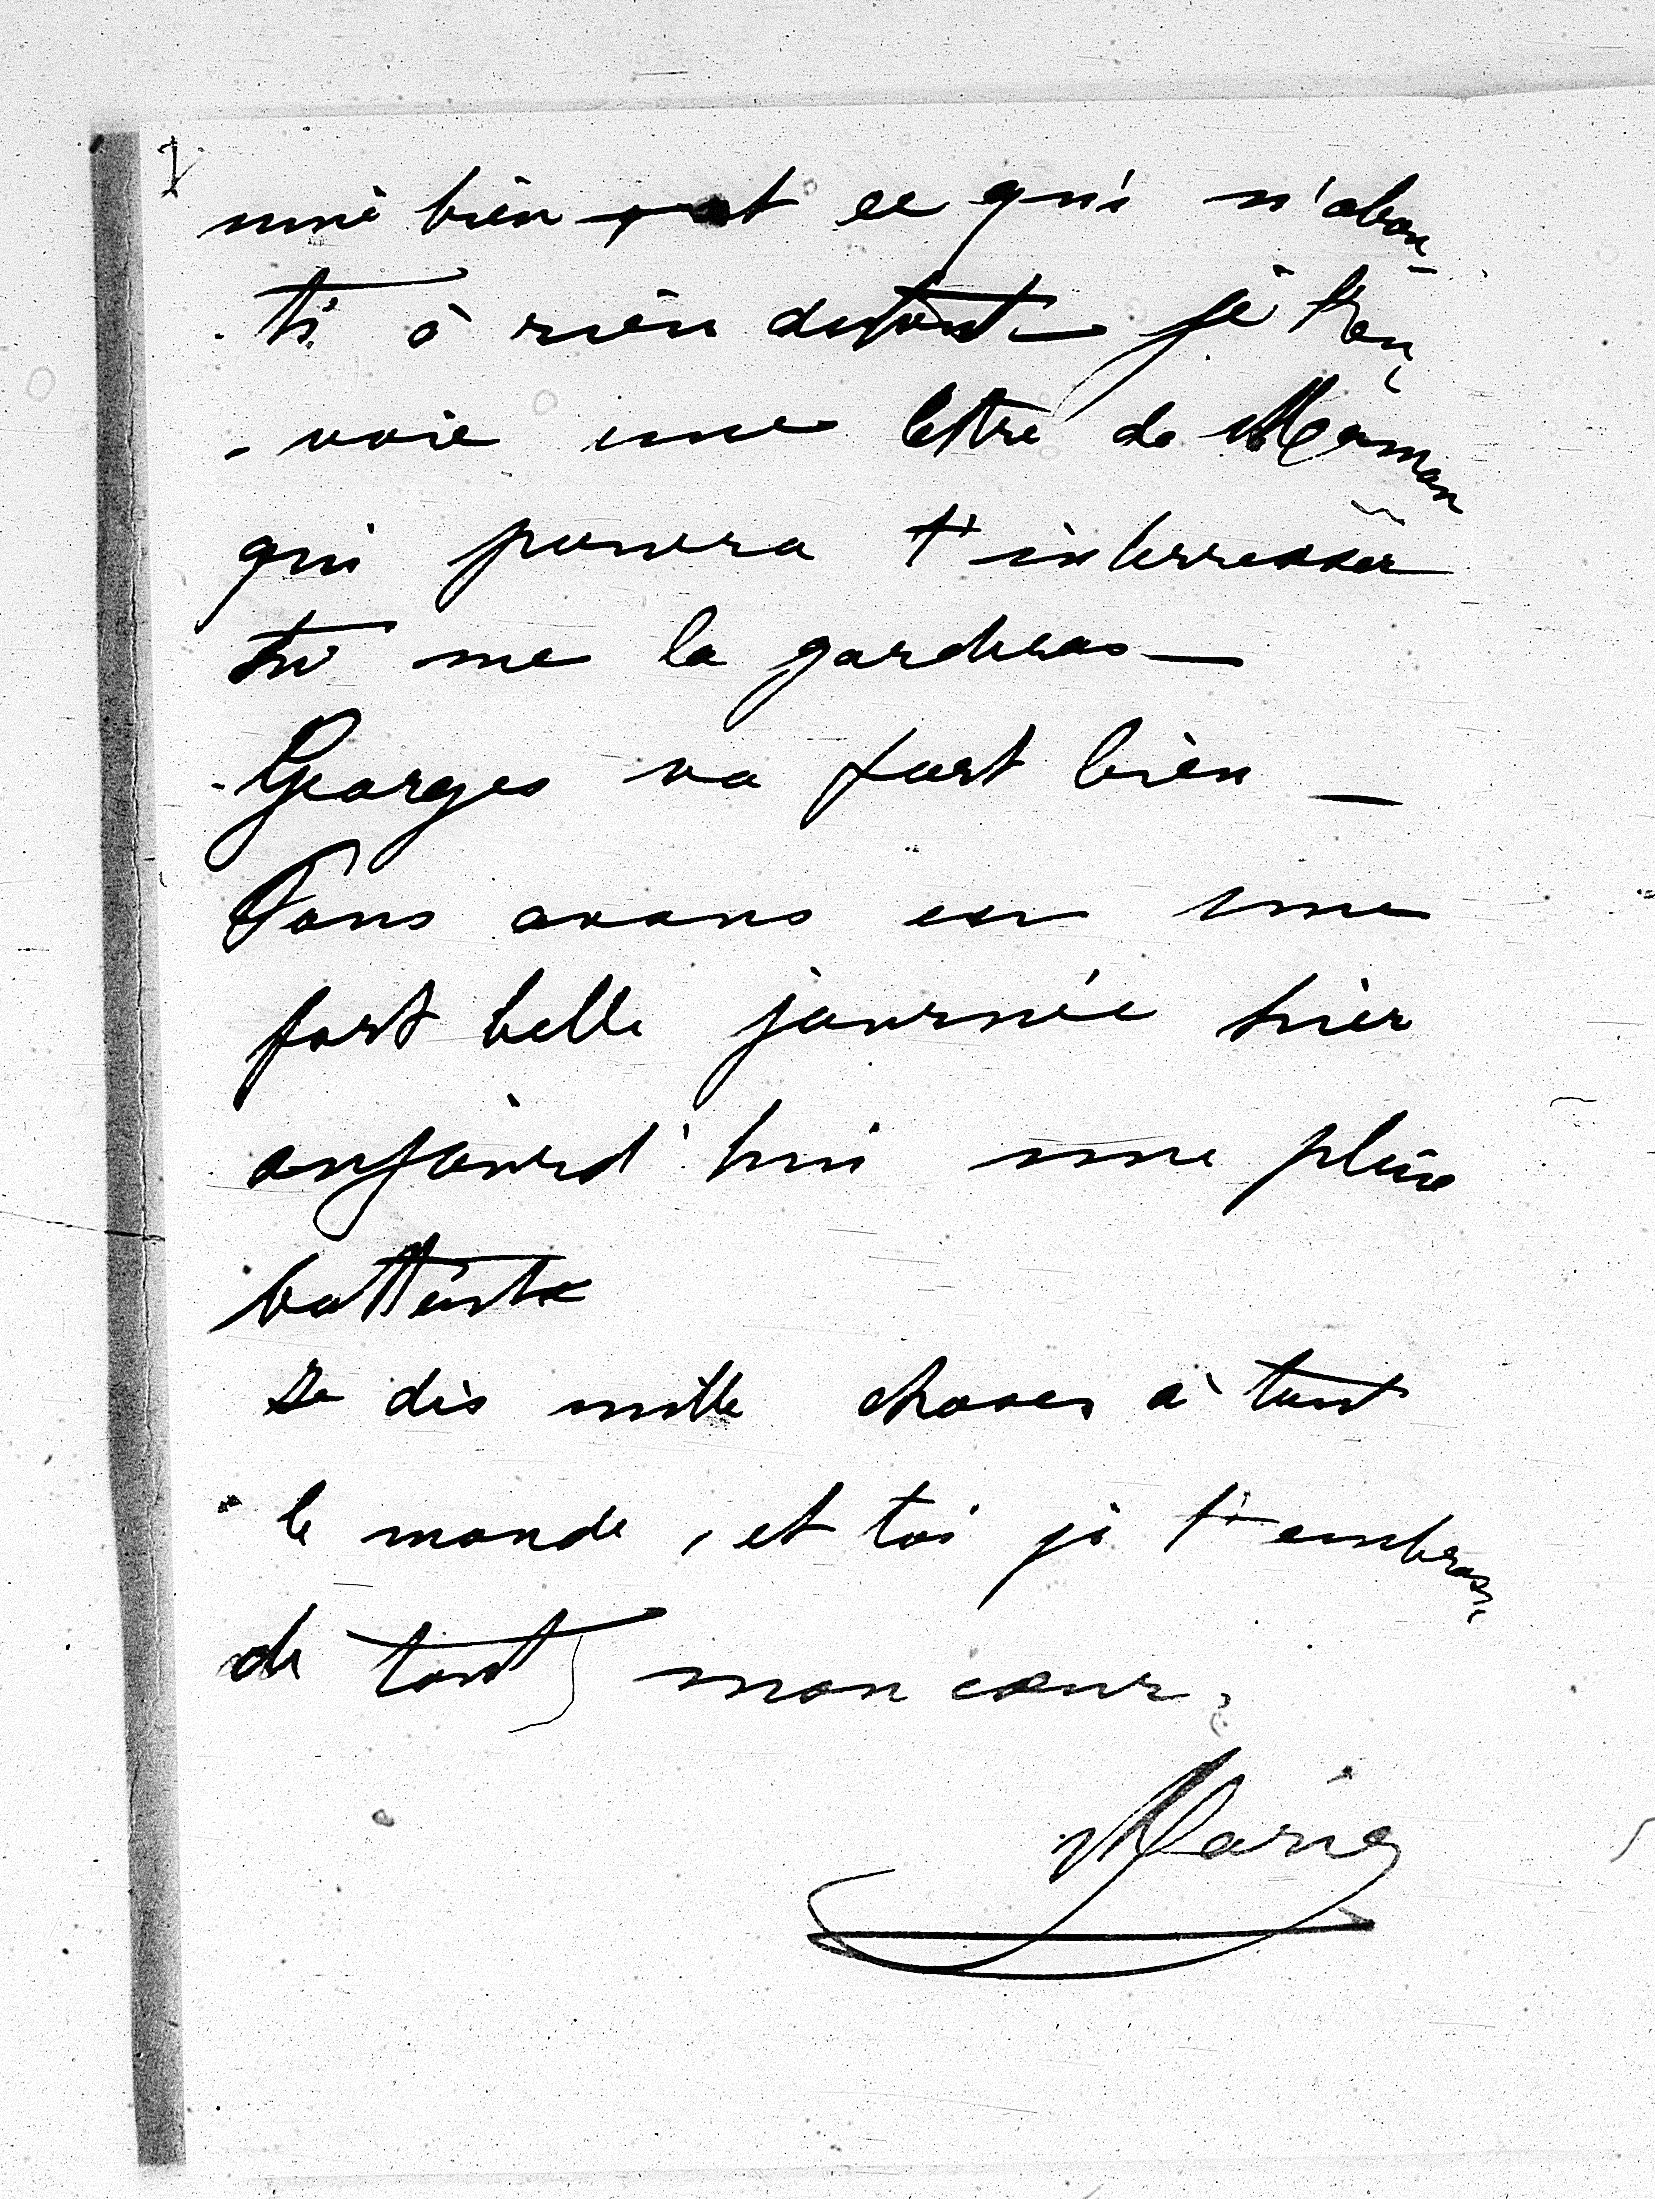 bien ce qui n'abou-
ti à rien du tout — je t'en-
-voie une lettre de Maman
qui pourra t'interresser
tu me la garderas —
Georges va fort bien —
Nous avons eu une
fort belle journée hier
aujourd'hui une pluie
battante
Je dis mille choses à tout
le monde, et toi je t'embrasse
de tout mon cœur.
Marie